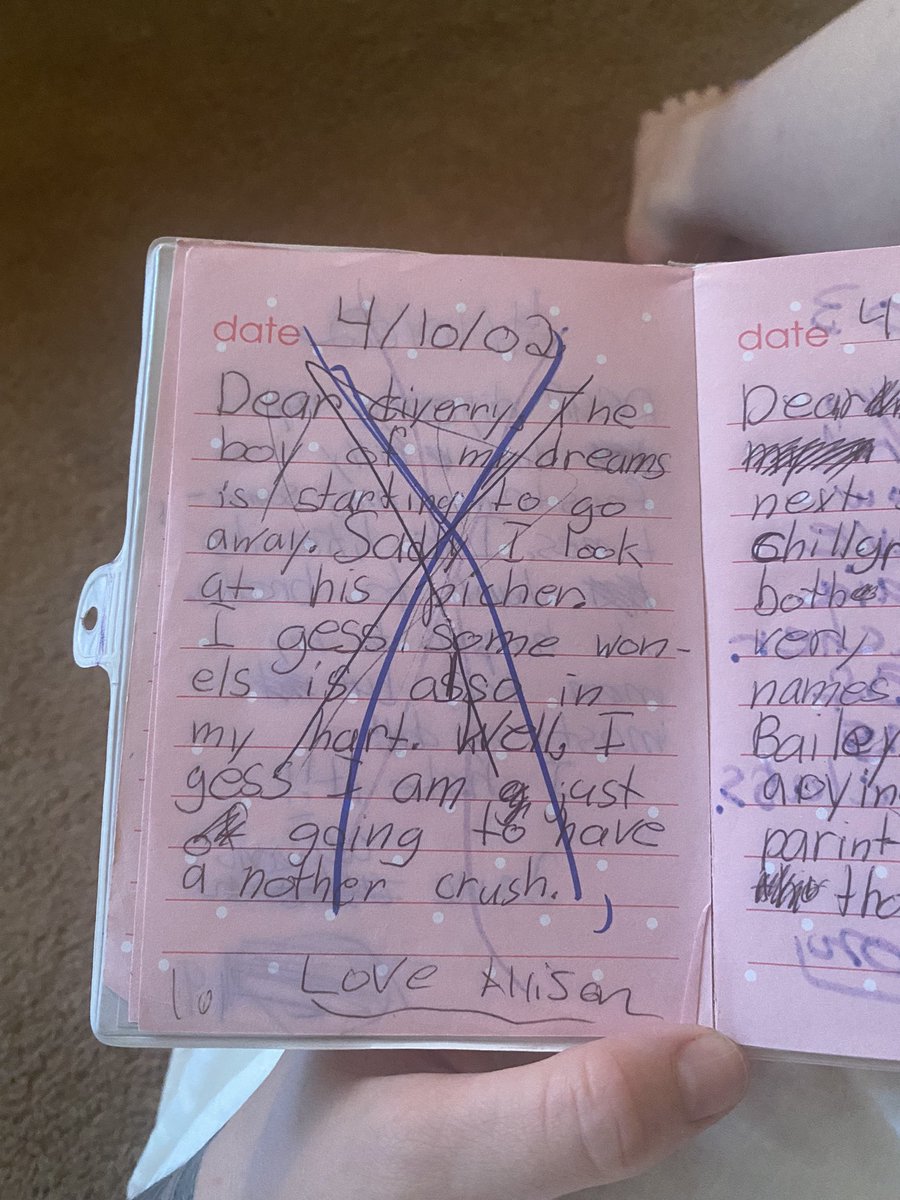 date 4/10/02
Dear diverry, The
boy of my dreams
is starting to go
away. Sadly I look
at his picher.
I gess some won-
els is also in
my hart. Well, I
gess I am just
going to have
a nother crush.
Love Alison
10
date 4
Dear
next
Chillgr
bothe
very
names.
Bailey
apyin
parint
tho